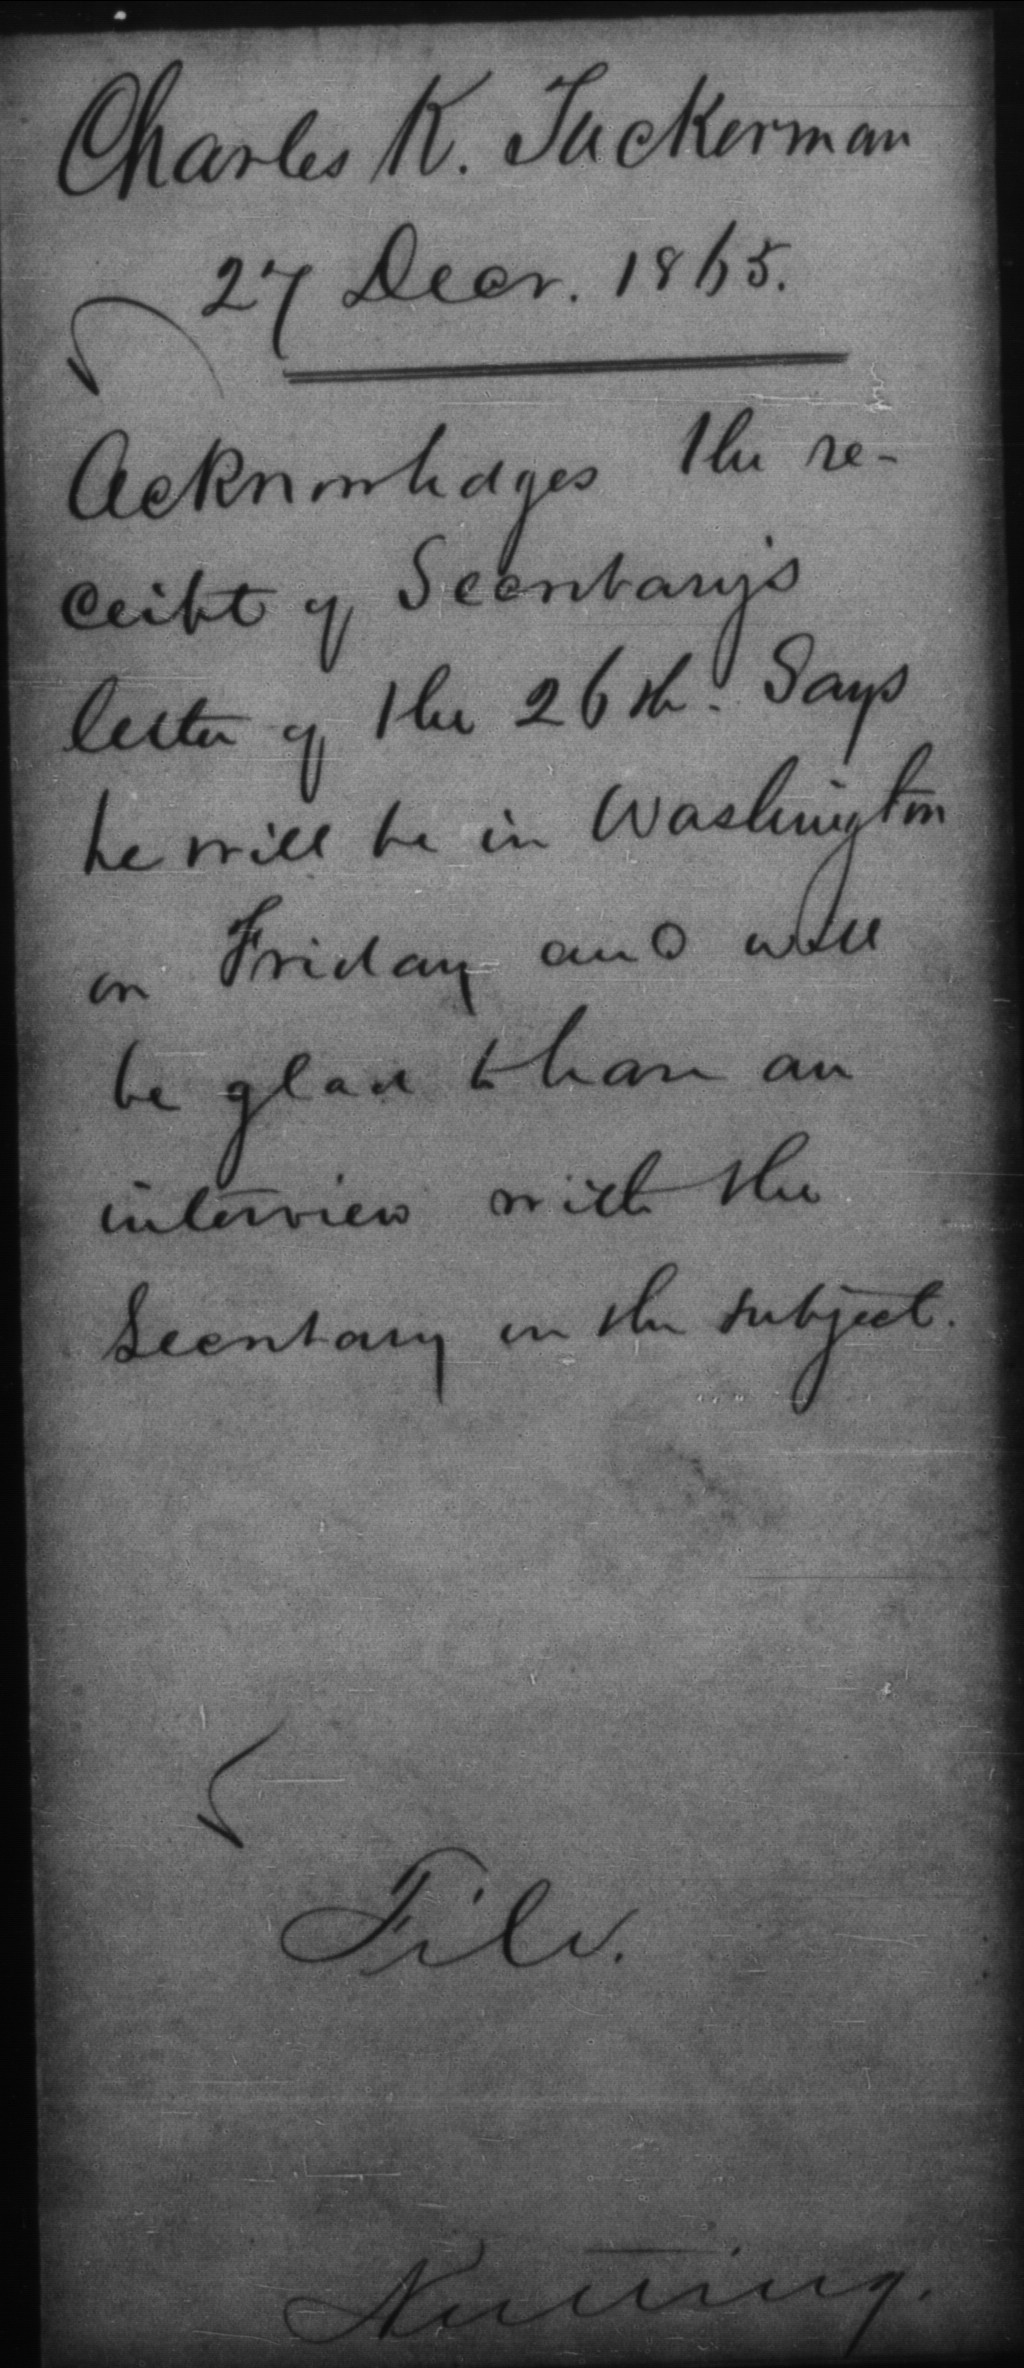 Charles K. Tuckerman
27 Decr. 1865.
Acknowledges the re-
ceipt of Secretary's
letter of the 26th. Says
he will be in Washington
on Friday and will
be glad to have an
interview with the
Secretary on the subject.
File.
Nutting.